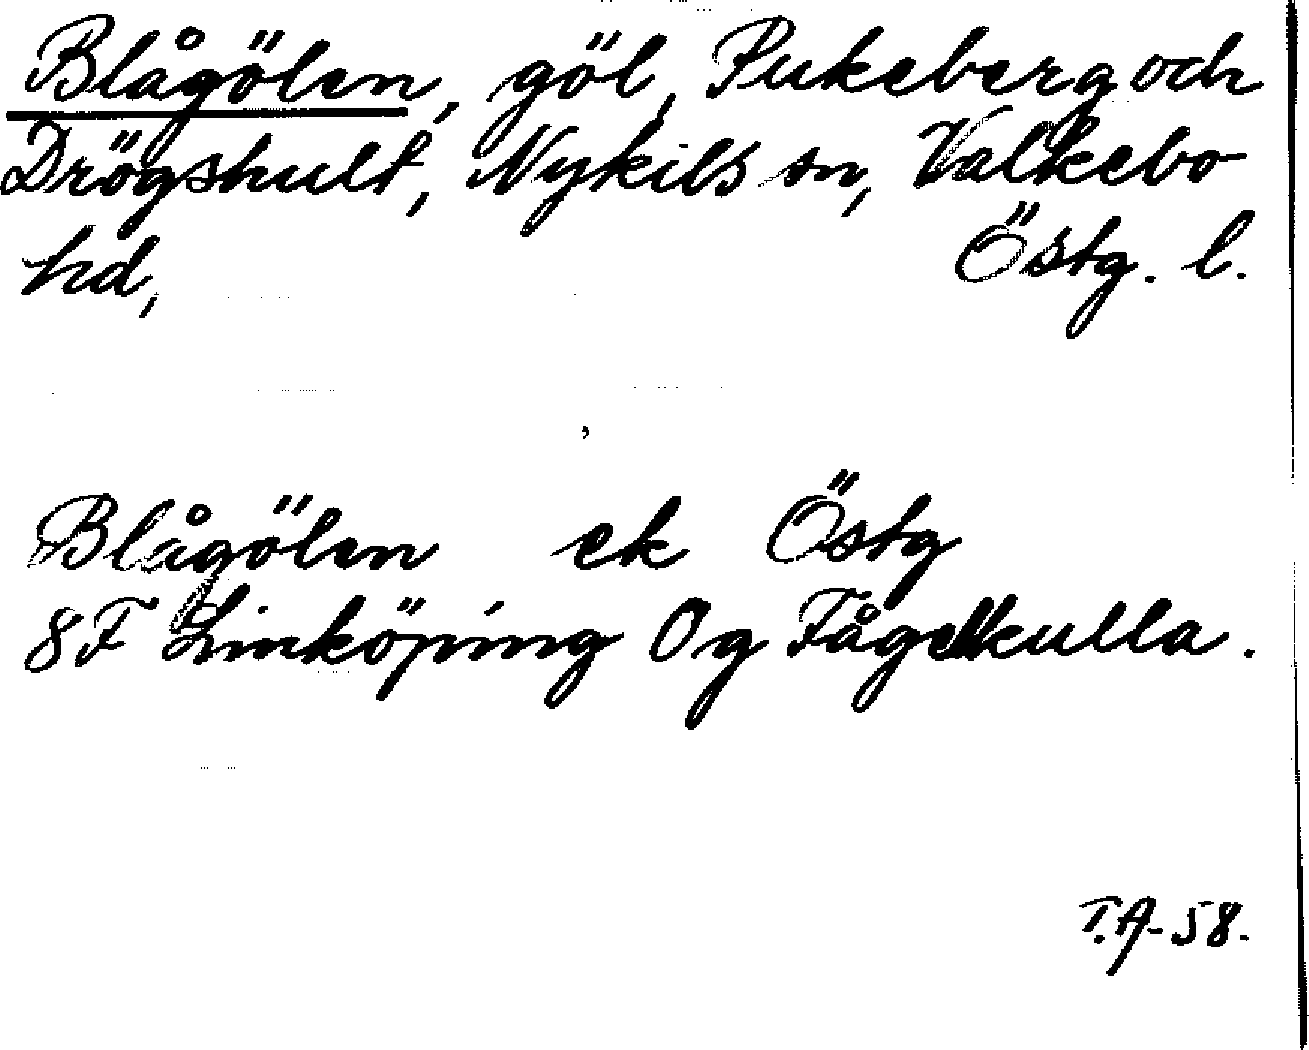 Blågölen, göl, Pukeberg och
Drögshult, Nykils sn, Valkebo
hd, Östg. l.
Blågölen ek Östg
8F Linköping Og Fågelkulla.
T.A-58.